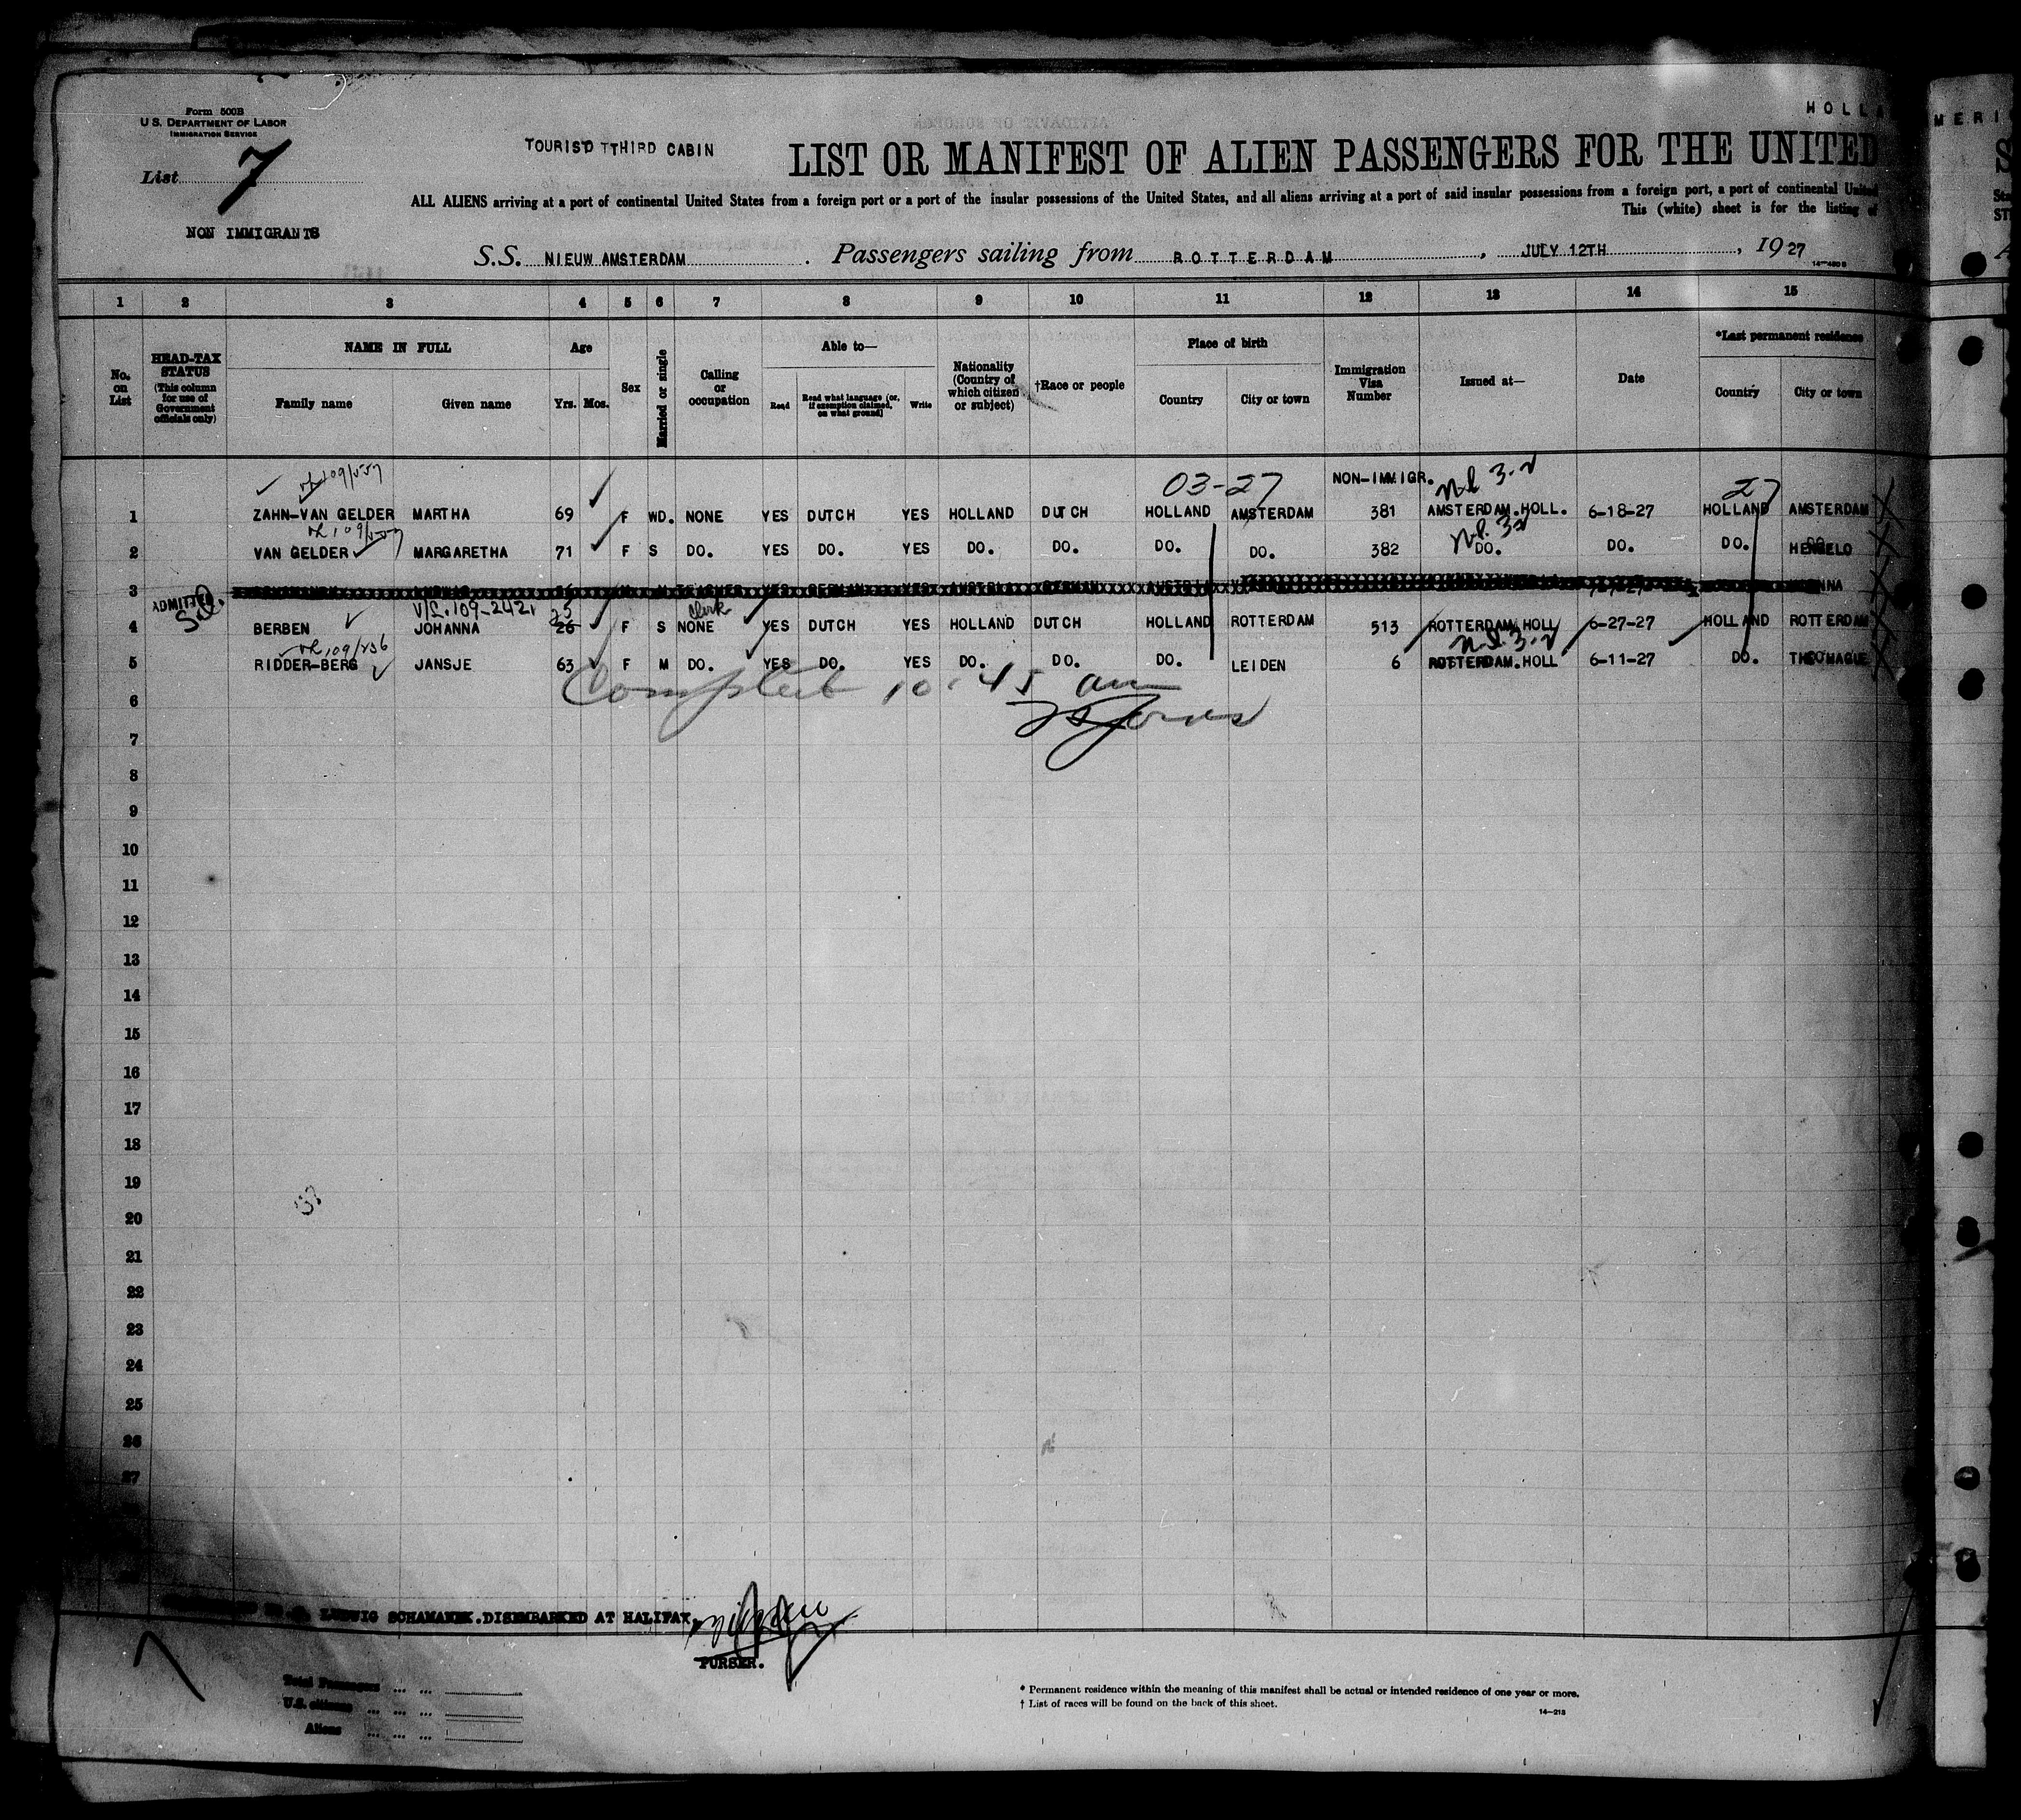 HOLLA
MERI
Form 500B
U.S. DEPARTMENT OF LABOR
IMMIGRATION SERVICE
List 7
NON IMMIGRANTS
TOURIST THIRD CABIN
LIST OR MANIFEST OF ALIEN PASSENGERS FOR THE UNITED
ALL ALIENS arriving at a port of continental United States from a foreign port or a port of the insular possessions of the United States, and all aliens arriving at a port of said insular possessions from a foreign port, a port of continental United
This (white) sheet is for the listing of
S.S. NIEUW AMSTERDAM. Passengers sailing from ROTTERDAM, JULY 12TH, 1927
1 2 3 4 5 6 7 8 9 10 11 12 13 14 15
No. on List
HEAD-TAX STATUS (This column for use of Government officials only)
NAME IN FULL
Family name
Given name
Age
Yrs. Mos.
Sex
Married or single
Calling or occupation
Able to—
Read
Read what language (or, if exemption claimed, on what ground)
Write
Nationality (Country of which citizen or subject)
†Race or people
Place of birth
Country
City or town
Immigration Visa Number
Issued at—
Date
*Last permanent residence
Country
City or town
03-27 NON-IMMIGR. 27
1 ZAHN-VAN GELDER MARTHA 69 F WD. NONE YES DUTCH YES HOLLAND DUTCH HOLLAND AMSTERDAM 381 AMSTERDAM.HOLL. 6-18-27 HOLLAND AMSTERDAM
2 VAN GELDER MARGARETHA 71 F S DO. YES DO. YES DO. DO. DO. DO. 382 DO. DO. DO. HENGELO
3 TEACHER YES GERMAN YES AUSTRIA GERMAN AUSTRIA
ADMITTED
V/L.109-242 25 Clerk
4 BERBEN JOHANNA 26 F S NONE YES DUTCH YES HOLLAND DUTCH HOLLAND ROTTERDAM 513 ROTTERDAM HOLL 6-27-27 HOLLAND ROTTERDAM
5 RIDDER-BERG JANSJE 63 F M DO. YES DO. YES DO. DO. DO. LEIDEN 6 ROTTERDAM.HOLL 6-11-27 DO. THE HAGUE
Complete 10:45 am
6
7
8
9
10
11
12
13
14
15
16
17
18
19
20
21
22
23
24
25
26
27
LUDWIG SCHAMANEK.DISEMBARKED AT HALIFAX.
PURSER.
Total Passengers ... ...
U.S. citizens ... ... ...
Aliens ... ... ...
* Permanent residence within the meaning of this manifest shall be actual or intended residence of one year or more.
† List of races will be found on the back of this sheet.
14—213